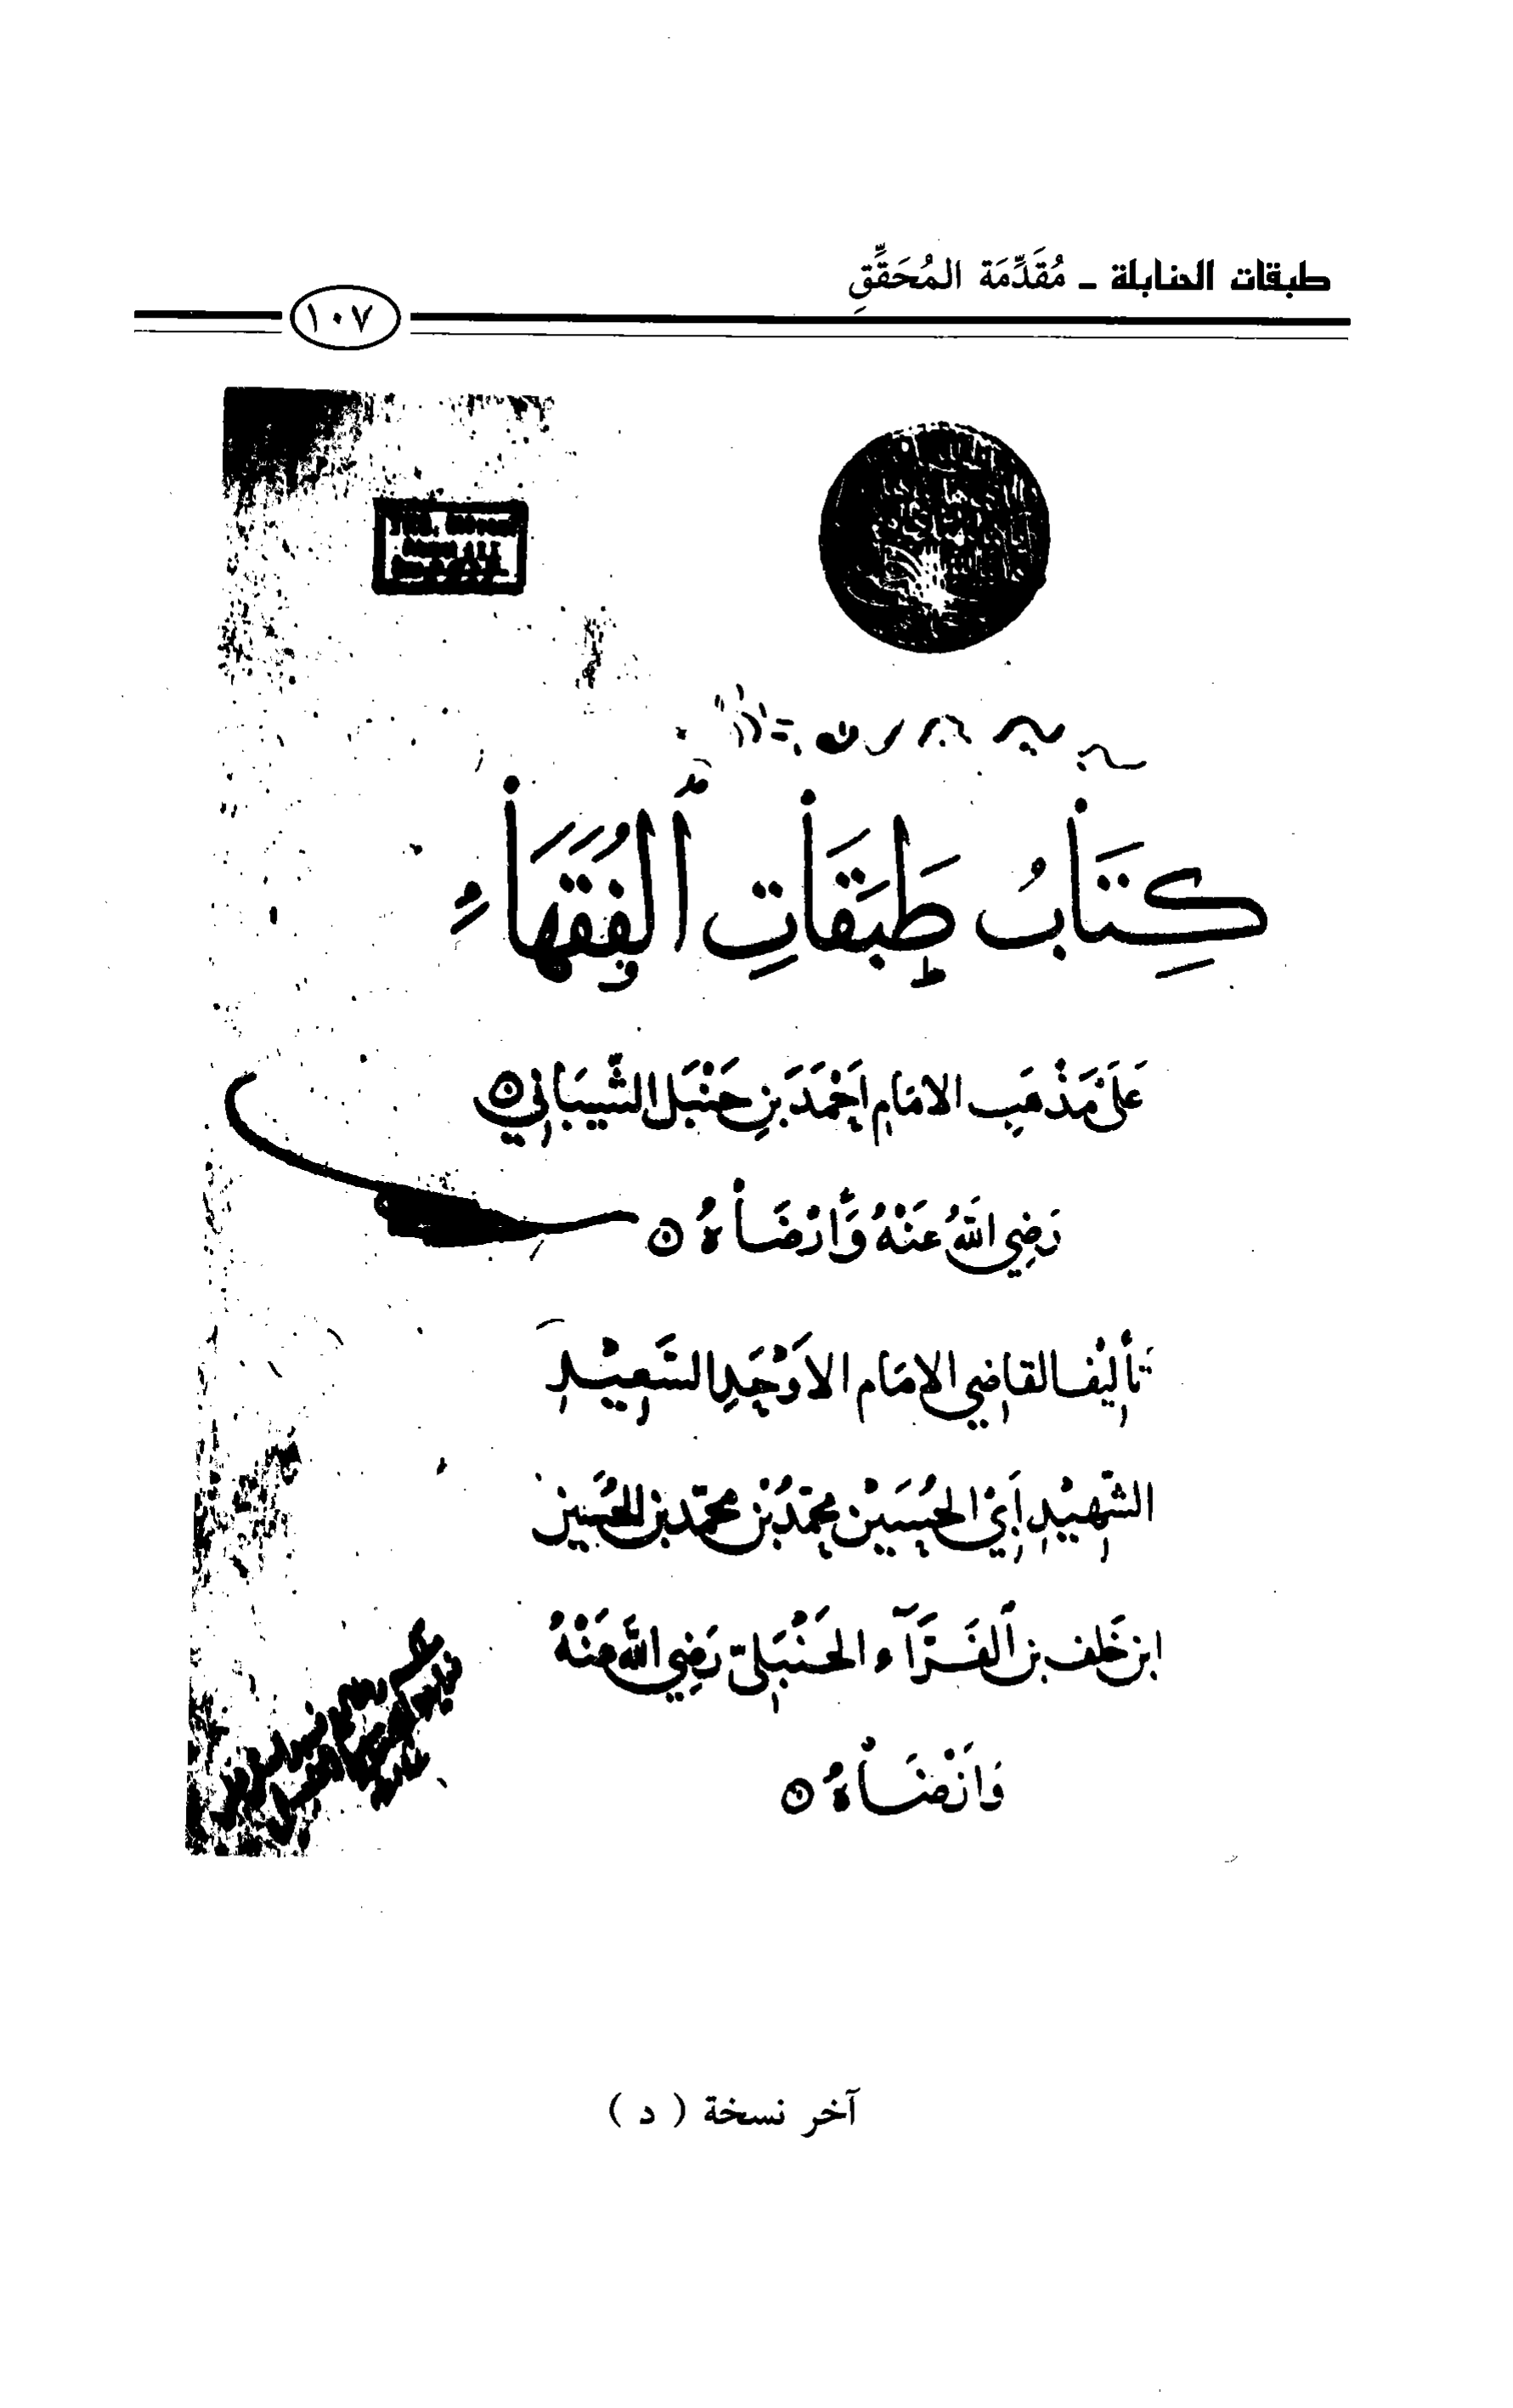 طبقات الحنابلة - مُقَدِّمَة المُحَقِّقِ
١٠٧
كِتَابُ طَبَقَاتِ ٱلفُقَهَاءِ
عَلَى مَذْهَبِ الامَامِ اَحْمَدَ بنِ حَنْبَل الشَّيبَانِي
رَضِيَ اللهُ عَنْهُ وَأَرْضَاهُ
تأليف القاضِي الامَام الاَوْحَدِ السَّعِيْدِ
الشَّهِيْدِ أَبِيْ الحُسَيْن محمَّدُ بْن محمَّد بن الحُسَين
ابن خَلف بن ٱلفَرَّآءِ الحَنْبَلِيّ رَضِيَ الله عَنْهُ
وَارْضَاهُ
آخر نسخة ( د )